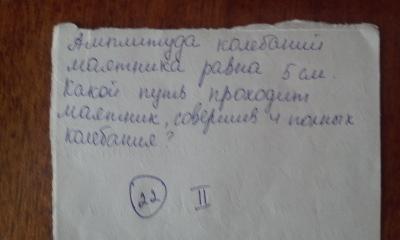 Амплитуда колебаний
маятника равна 5 см.
Какой путь проходит
маятник, совершив 4 полных
колебания?
22 II